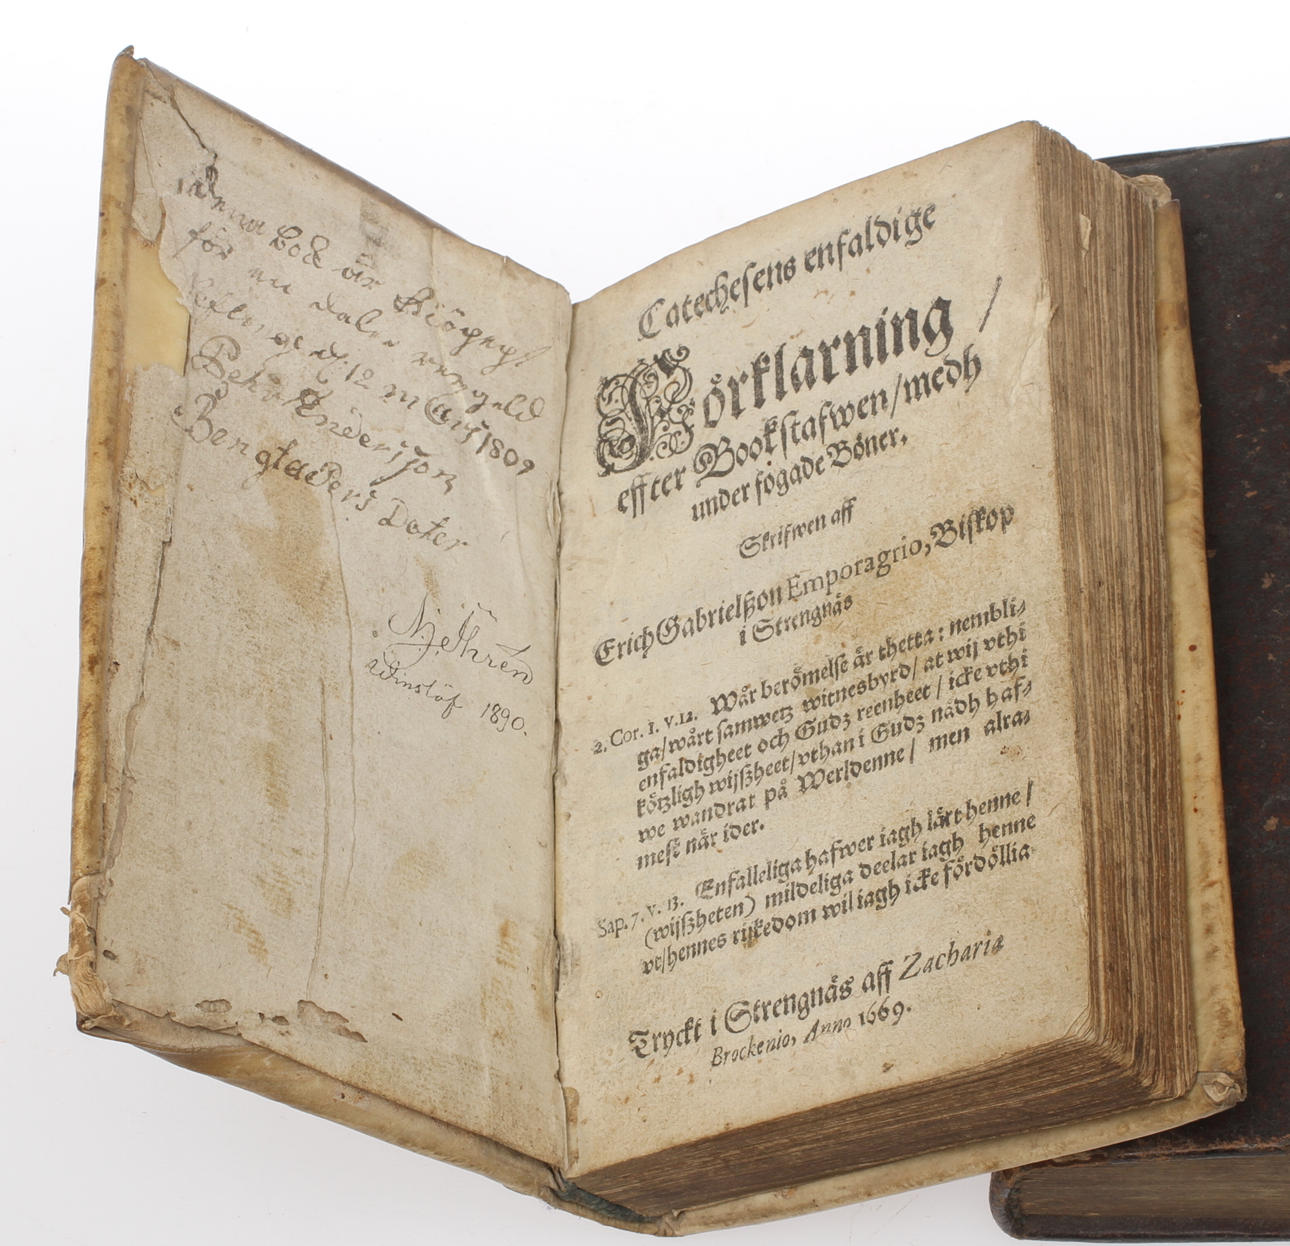 denna bok är Kiöpept
för en daler rengeld
den 12 Mars 1809
Pehr Andersson
Bengta Pers Doter
N. J. Thrén
Winslöf 1890.
Catechesens enfaldige
Förklarning /
effter Bookstafwen / medh
under fögade Böner.
Skrifwen aff
Erich Gabrielßon Emporagrio, Biskop
i Strengnäs
2. Cor. 1. v. 12. Wår berömelse är thetta: nembli-
ga / wårt samwetz witnesbyrd / at wij vthi
enfaldigheet och Gudz reenheet / icke vthi
kötzligh wijßheet / vthan i Gudz nådh haf-
we wandrat på Werldenne / men alra-
mest när ider.
Sap. 7. v. 13. Enfalleliga hafwer iagh lärt henne /
(wijßheten) mildeliga deelar iagh henne
vt / hennes rijkedom wil iagh icke fördöllia
Tryckt i Strengnäs aff Zachariæ
Brockenio, Anno 1669.